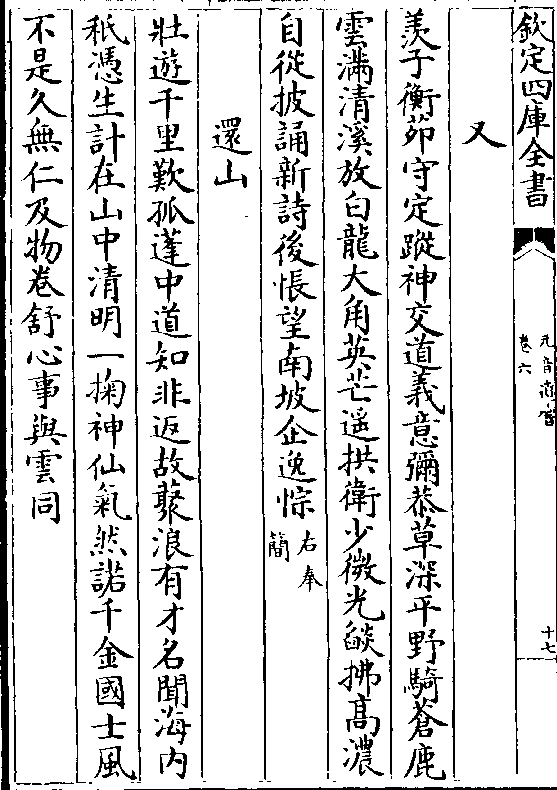 欽定四庫全書
卷六
十七
又
羡子衡茆守定蹤神交道義意彌恭草深平野騎蒼鹿
雲滿清溪放白龍大角英芒遥拱衛少微光燄拂高濃
自從披誦新詩後悵望南坡企逸悰
右奉
簡
還山
壯遊千里歎孤蓬中道知非返故藂浪有才名聞海内
秪憑生計在山中清明一掬神仙氣然諾千金國士風
不是久無仁及物卷舒心事與雲同